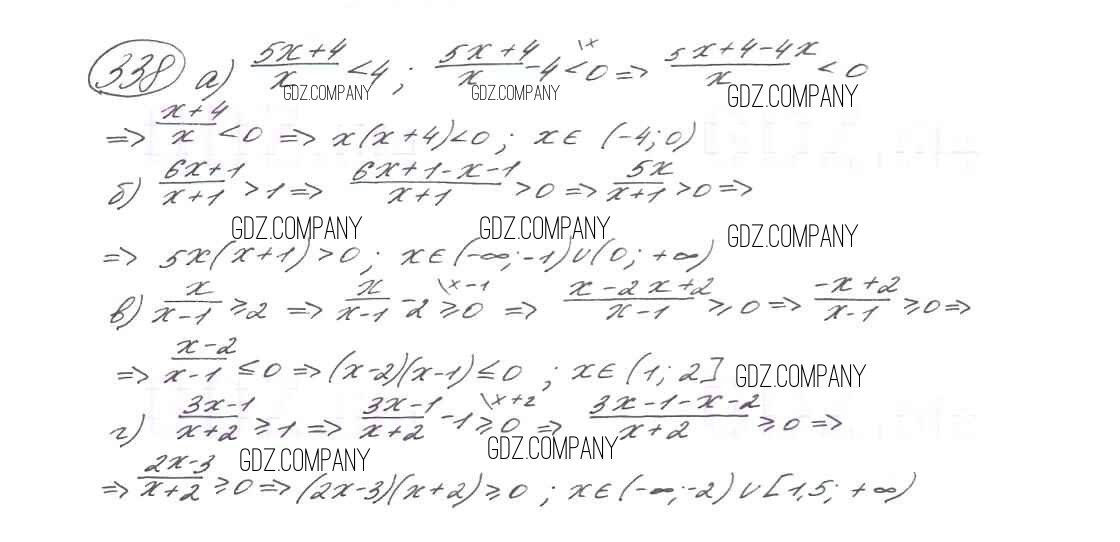 338 а) (5x+4)/x < 4 ; (5x+4)/x - 4 \x < 0 => (5x+4-4x)/x < 0
GDZ.COMPANY GDZ.COMPANY GDZ.COMPANY
=> (x+4)/x < 0 => x(x+4)<0 ; x∈ (-4; 0)
б) (6x+1)/(x+1) > 1 => (6x+1-x-1)/(x+1) > 0 => 5x/(x+1) > 0 =>
GDZ.COMPANY GDZ.COMPANY GDZ.COMPANY
=> 5x(x+1)>0 ; x∈(-∞;-1)∪(0; +∞)
в) x/(x-1) ≥ 2 => x/(x-1) - 2 \x-1 ≥ 0 => (x-2x+2)/(x-1) ≥ 0 => (-x+2)/(x-1) ≥ 0 =>
=> (x-2)/(x-1) ≤ 0 => (x-2)(x-1) ≤ 0 ; x∈ (1; 2] GDZ.COMPANY
г) (3x-1)/(x+2) ≥ 1 => (3x-1)/(x+2) - 1 \x+2 ≥ 0 => (3x-1-x-2)/(x+2) ≥ 0 =>
GDZ.COMPANY GDZ.COMPANY
=> (2x-3)/(x+2) ≥ 0 => (2x-3)(x+2) ≥ 0 ; x∈(-∞;-2) ∪ [1,5; +∞)